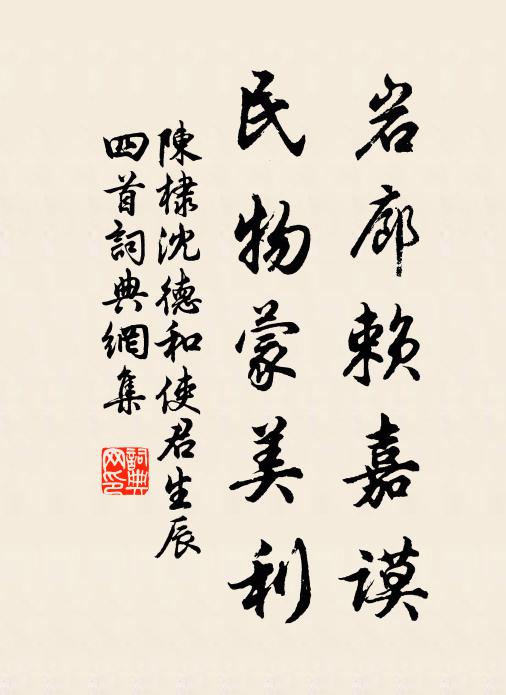 岩廊赖嘉谟
民物蒙美利
陳棣沈德和使君生辰
四首詞典網集
詞典网印